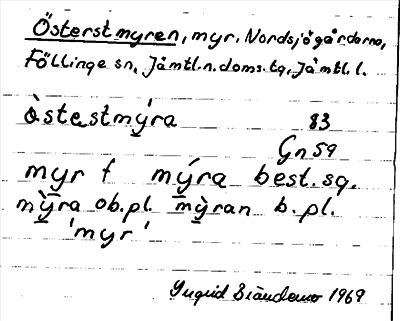 Österstmyren, myr. Nordsjögårdarna,
Föllinge sn, Jämtl.n.doms.tg, Jämtl.l.
östestmýra 83
Gn 59
myr f mýra best. sg.
mỳra ob.pl. mỳran b.pl.
'myr'
Ingrid 1969